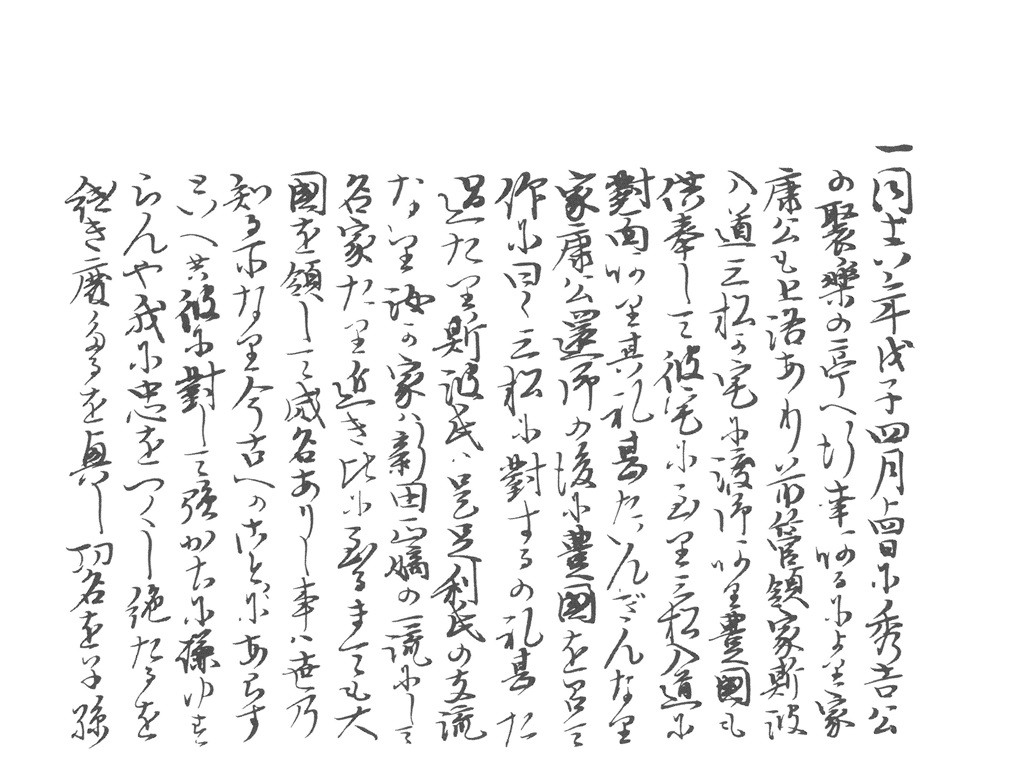 一同十六年戊子四月十四日に秀吉公
の聚樂の亭へ行幸あるにより家
康公も上洛あり前管領家斯波
入道三松か宅に渡御あり豊國も
供奉して彼宅に至り三松入道に
對面あり其礼甚たいんぎんなり
家康公還御の後に豊國を召て
作に曰く三松に對するの礼甚た
過たり斯波氏は是足利氏の支流
なり論か家は新田正嫡の一流にして
名家たり近き比に至るまても大
國を領して威名ありし事は世乃
知る所なり今古への如とにあらす
といへ共彼に對して強かちに謙ゆへす
らんや我に忠をつくし絶たるを
継き廢たるを興し功名を子孫